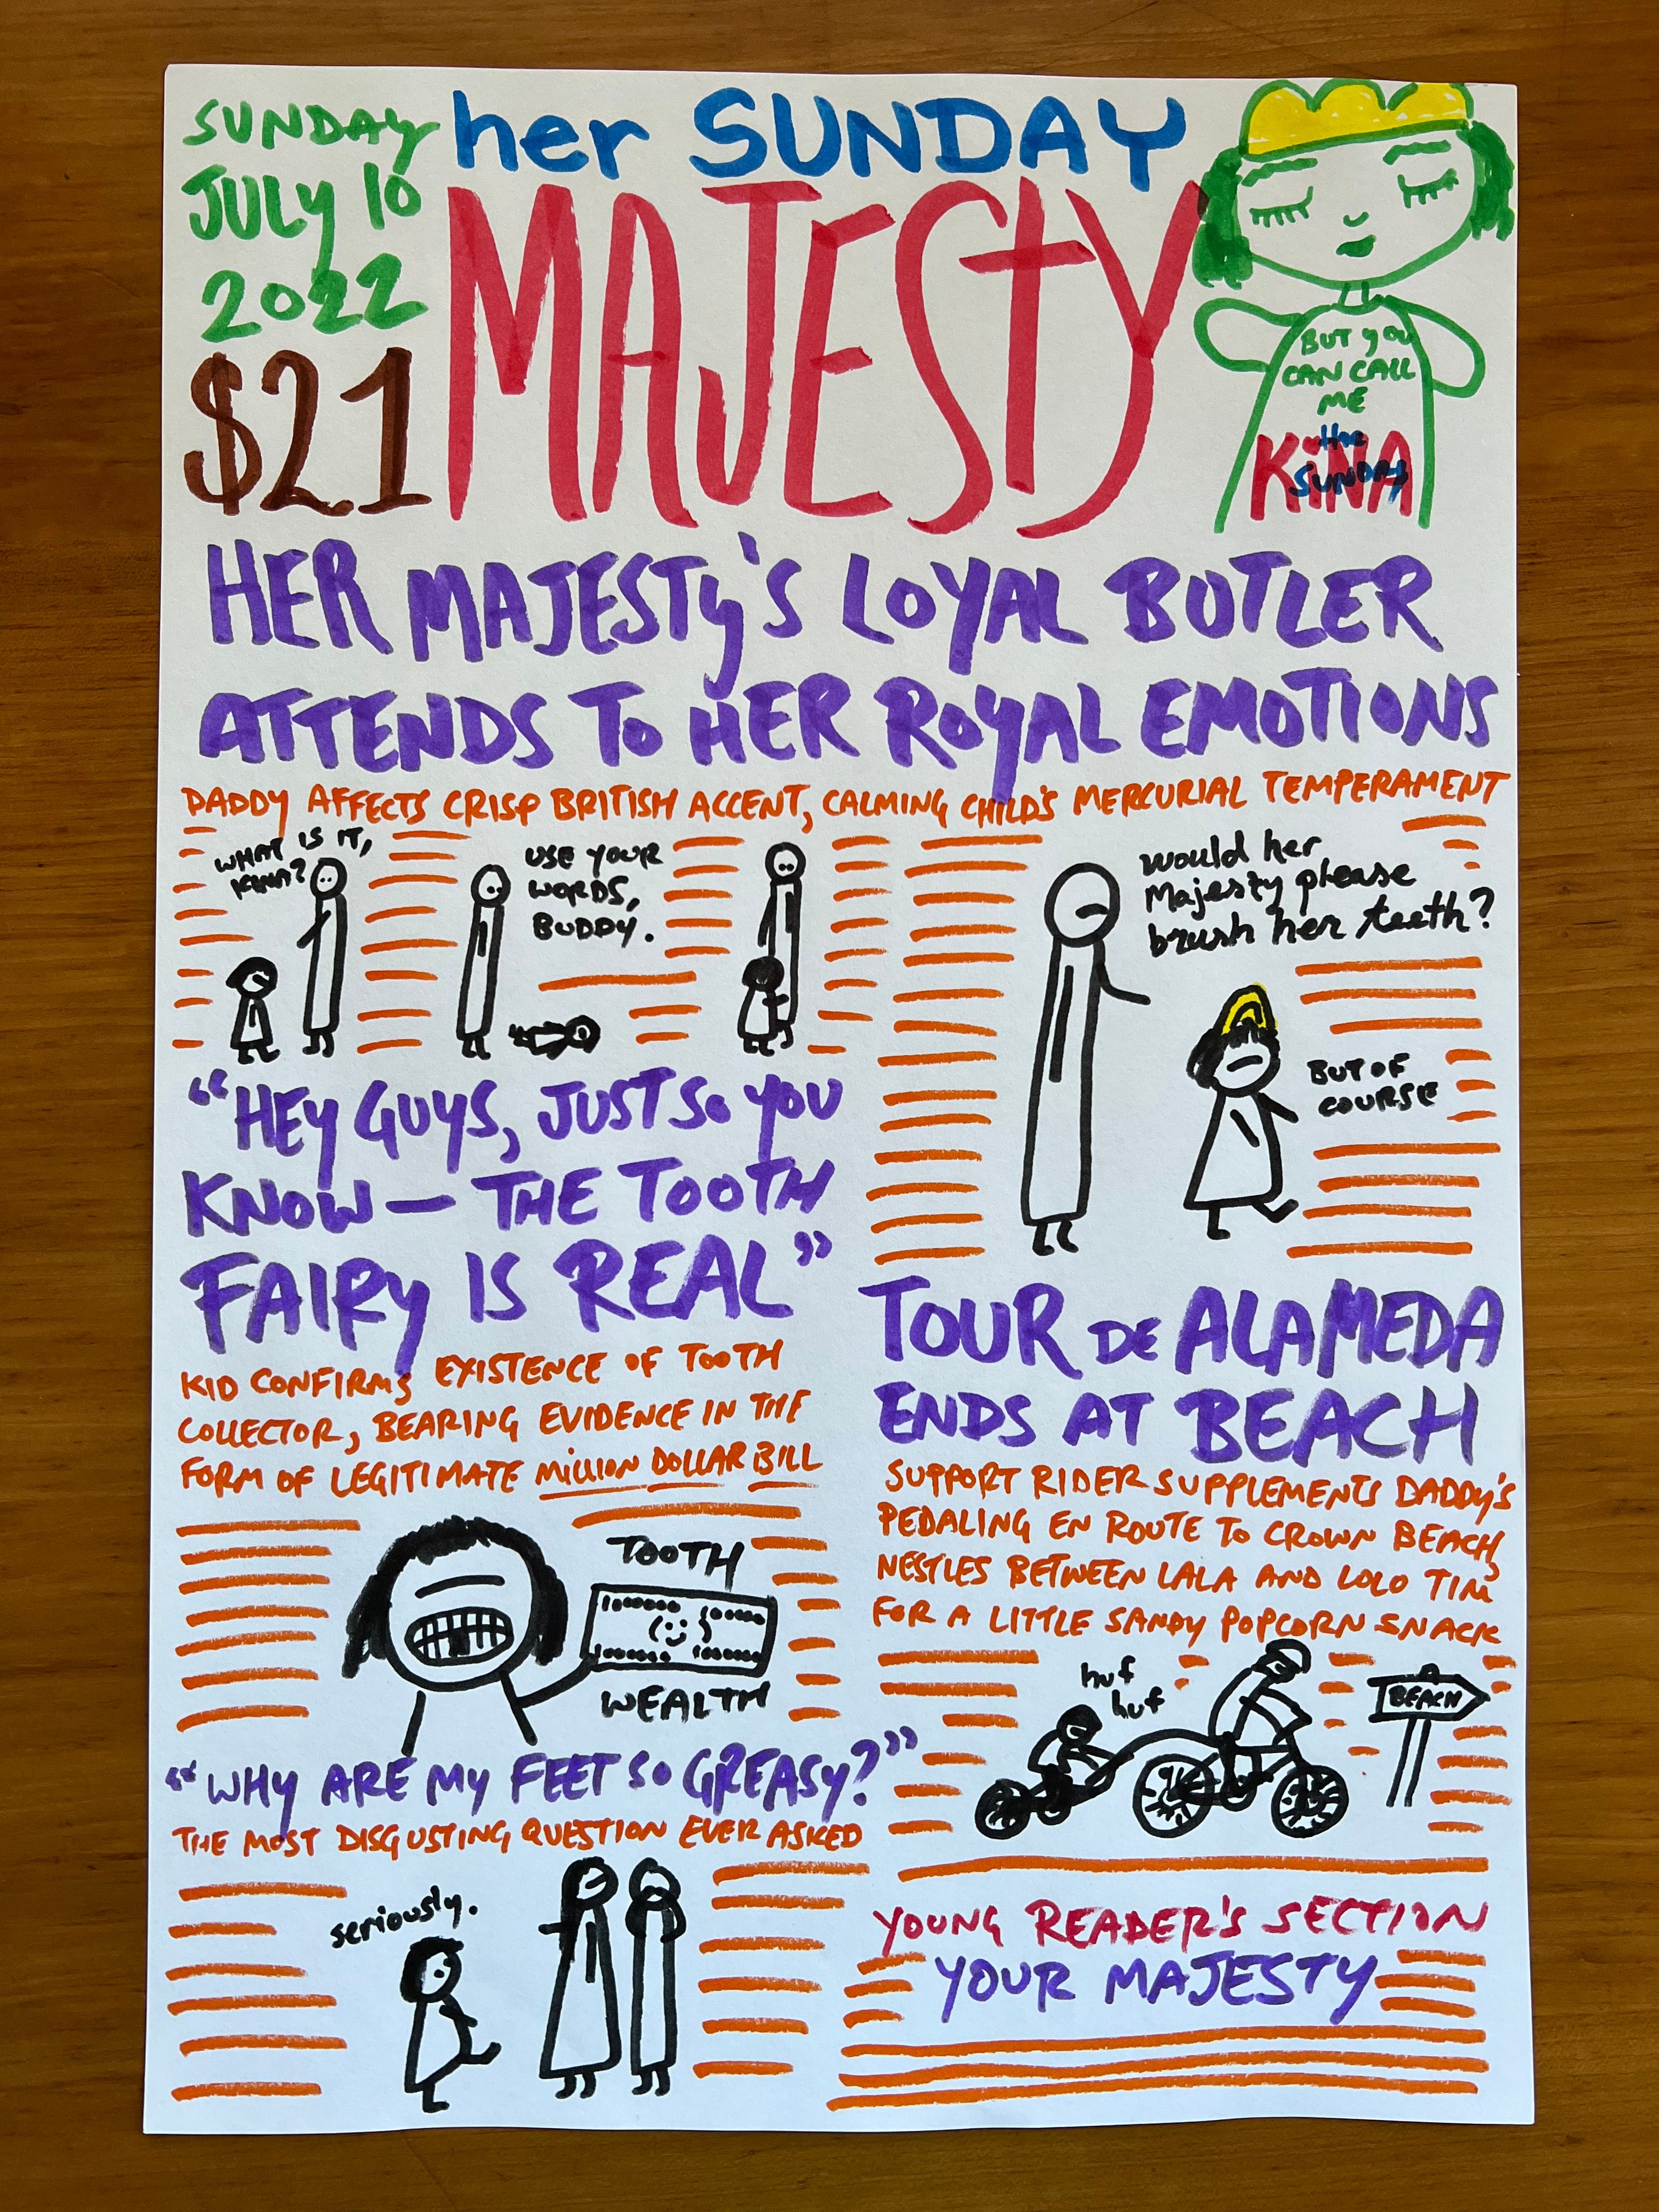 SUNDAY
JULY 10
2022
$21
her SUNDAY
MAJESTY
BUT YOU
CAN CALL
ME
the
SUNDAY
KiNA
HER MAJESTY'S LOYAL BUTLER
ATTENDS TO HER ROYAL EMOTIONS
DADDY AFFECTS CRISP BRITISH ACCENT, CALMING CHILD'S MERCURIAL TEMPERAMENT
WHAT IS IT,
KINA?
USE YOUR
WORDS,
BUDDY.
Would her
Majesty please
brush her teeth?
BUT OF
COURSE
"HEY GUYS, JUST SO YOU
KNOW — THE TOOTH
FAIRY IS REAL"
KID CONFIRMS EXISTENCE OF TOOTH
COLLECTOR, BEARING EVIDENCE IN THE
FORM OF LEGITIMATE MILLION DOLLAR BILL
TOOTH
WEALTH
"WHY ARE MY FEET SO GREASY?"
THE MOST DISGUSTING QUESTION EVER ASKED
seriously.
TOUR DE ALAMEDA
ENDS AT BEACH
SUPPORT RIDER SUPPLEMENTS DADDY'S
PEDALING EN ROUTE TO CROWN BEACH,
NESTLES BETWEEN LALA AND LOLO TIM
FOR A LITTLE SANDY POPCORN SNACK
huf
huf
BEACH
YOUNG READER'S SECTION
YOUR MAJESTY